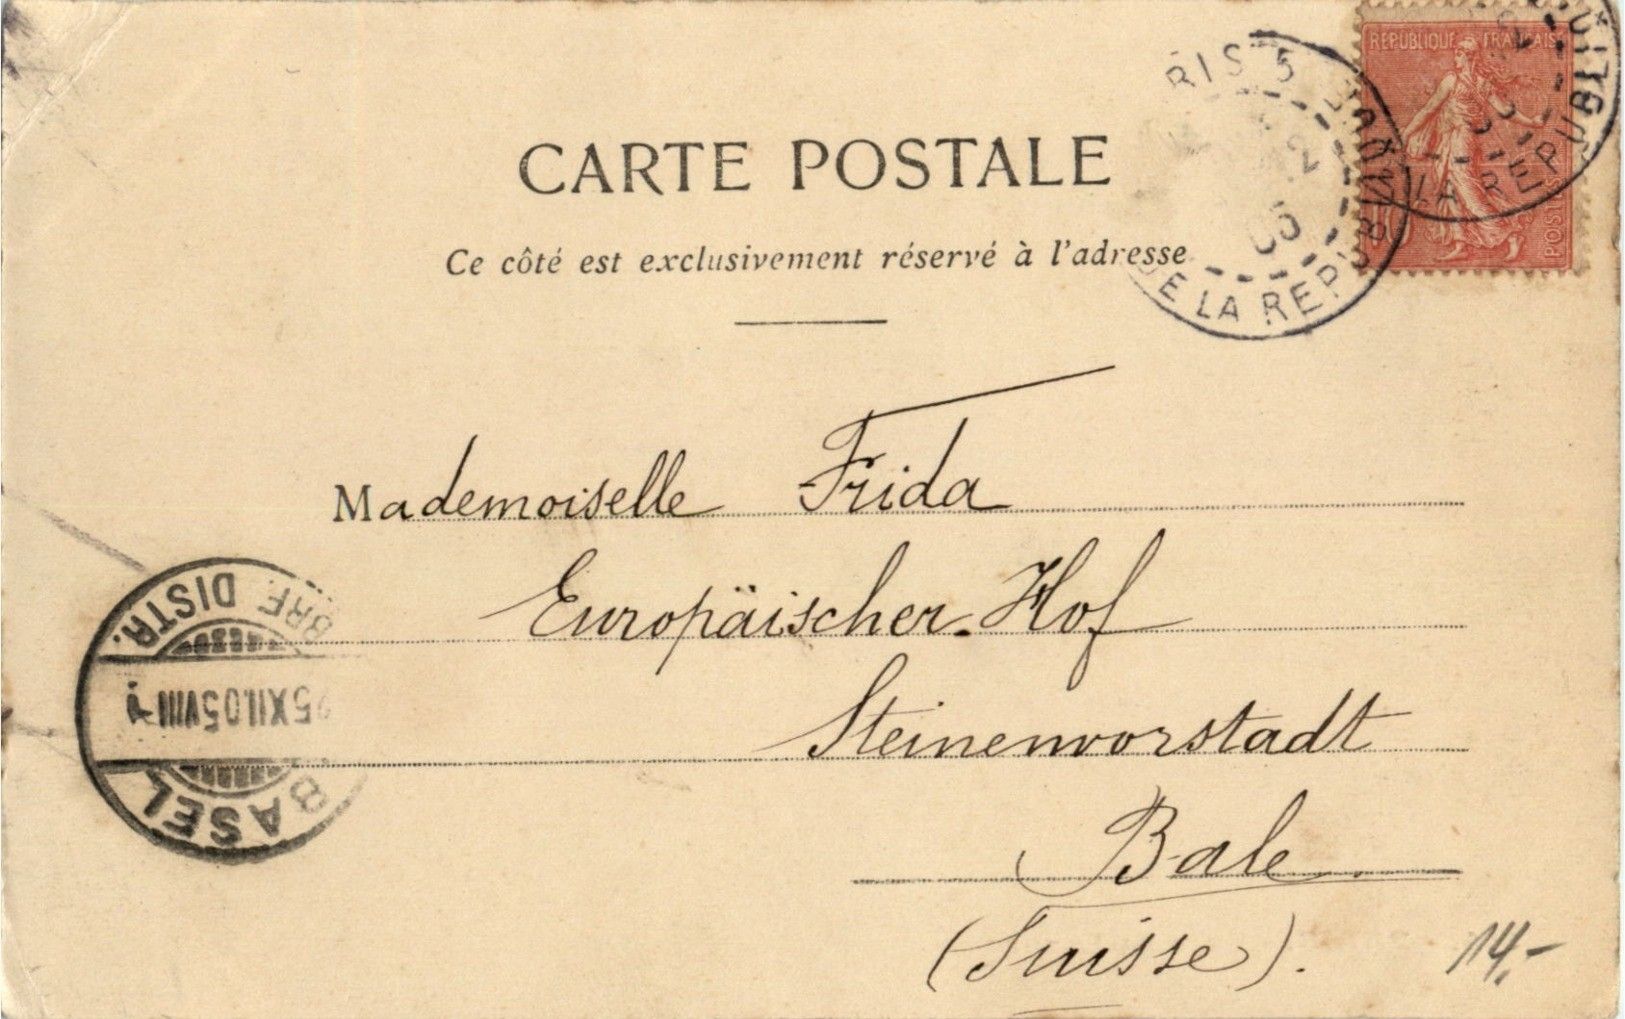 CARTE POSTALE
Ce côté est exclusivement réservé à l'adresse
RIS 5
05
DE LA REP
REPUBLIQUE FRANÇAISE
POSTES
LA REPUBLIQ
Mademoiselle Frida
Europäischer-Hof
Steinenvorstadt
Bale.
(Suisse).
BRF. DISTR.
25 XII.05 VIII
BASEL
14.-